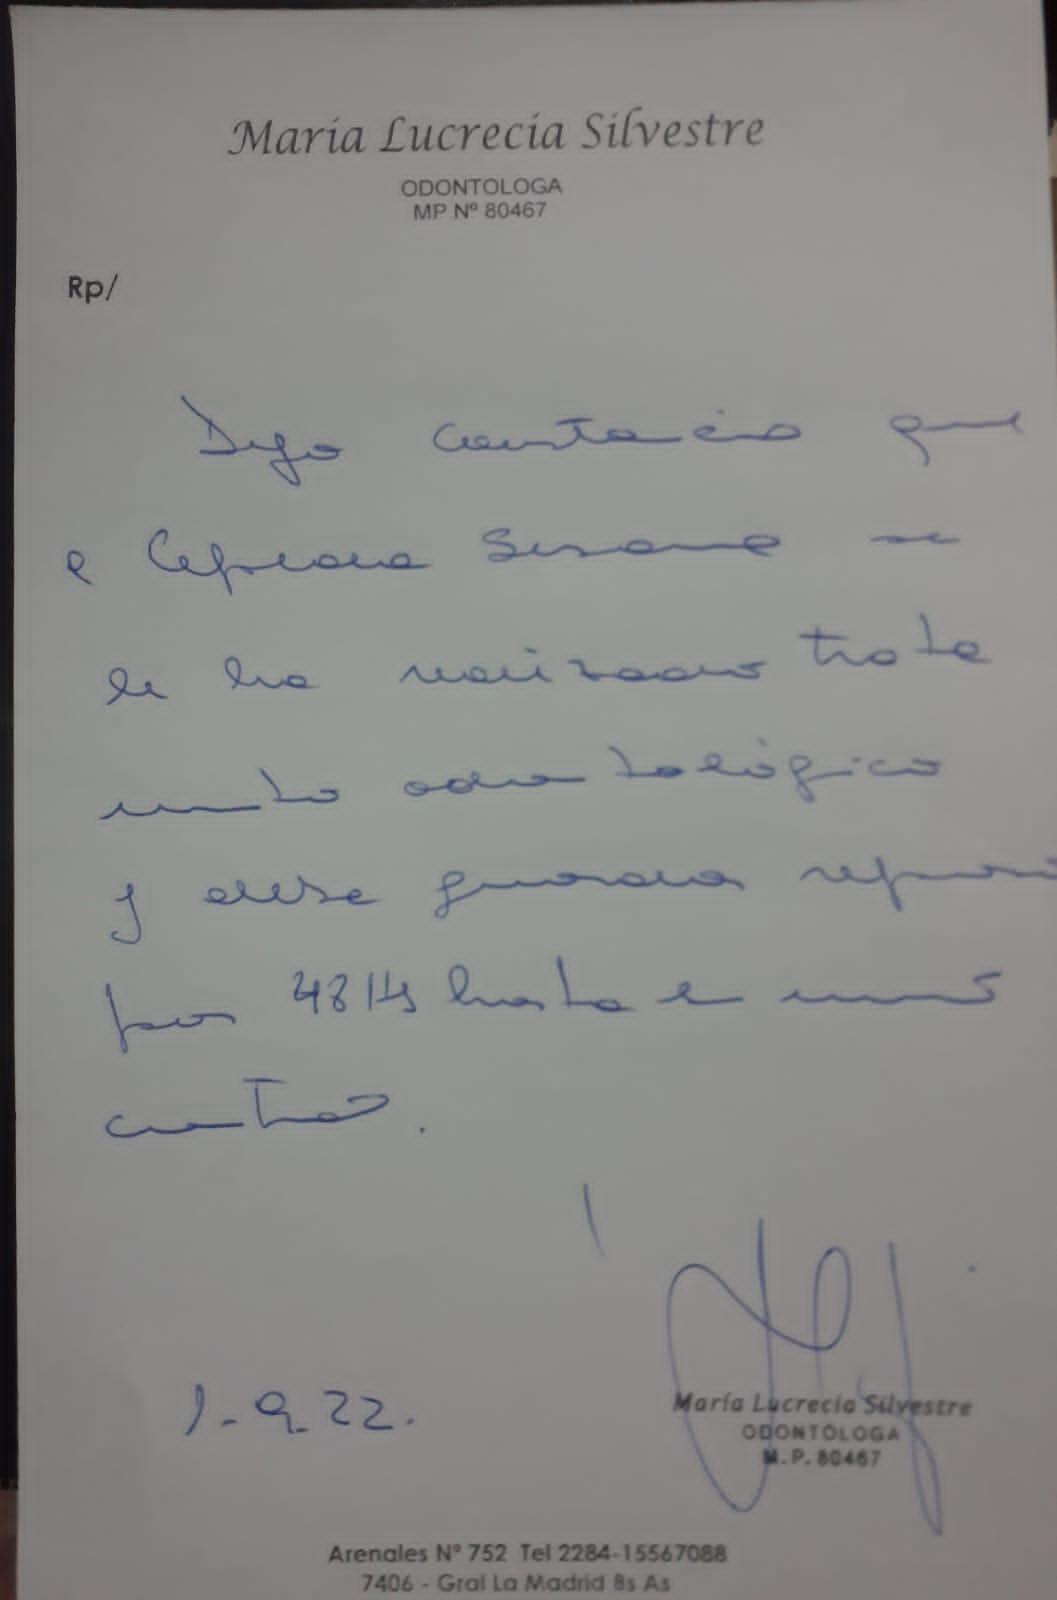 María Lucrecia Silvestre
ODONTOLOGA
MP Nº 80467
Rp/
Dejo constancia que
a Susana se
le ha realizado trata
miento odontológico
y debe guardar reposo
por 48 Hs hasta el nuevo
control.
1-9-22.
María Lucrecia Silvestre
ODONTÓLOGA
M.P. 80467
Arenales Nº 752 Tel 2284-15567088
7406 - Gral La Madrid Bs As